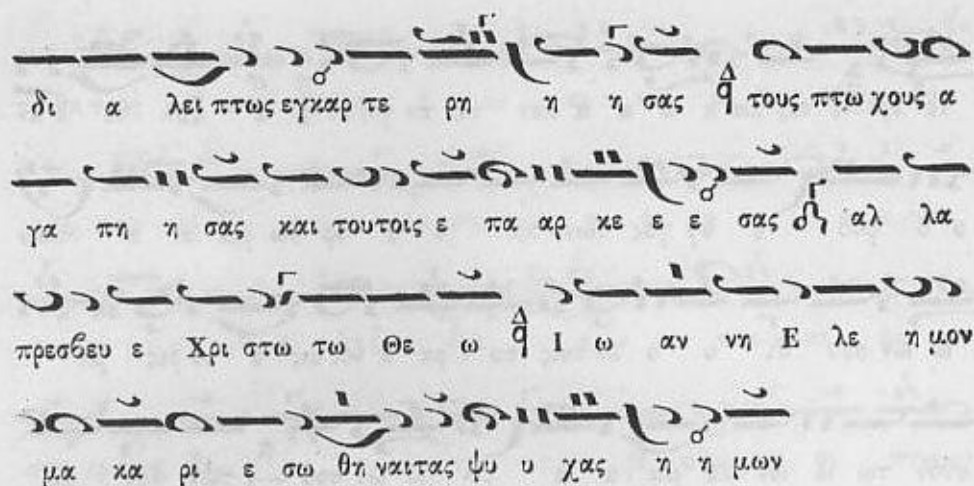 δι α λει πτως εγκαρ τε ρη η η σας Δ q τους πτω χους α
γα πη η σας και τουτοις ε πα αρ κε ε ε σας αλ λα
πρεσβευ ε Χρι στω τω Θε ω Δ q Ι ω αν νη Ε λε η μον
μα κα ρι ε σω θη ναι τας ψυ υ χας η η μων